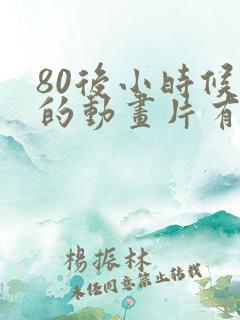 80後小時候
的動畫片有
楊振林
未经同意禁止转载